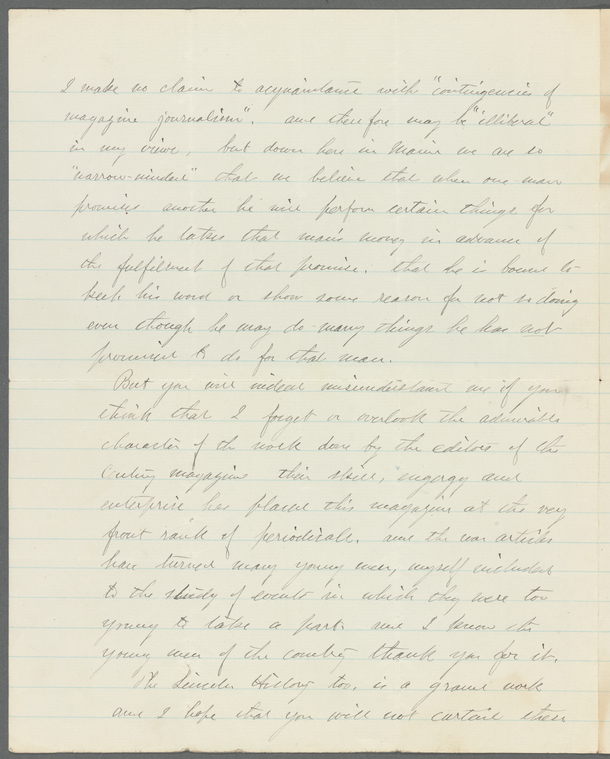 I make no claim to acquaintance with "contingencies of
magazine journalism". and therefore may be "illiberal"
in my views, but down here in Maine we are so
"narrow-minded" that we believe that when one man
promises another he will perform certain things for
which he takes that man's money in advance of
the fulfilment of that promise. that he is bound to
keep his word or show some reason for not so doing
even though he may do many things he has not
promised to do for that man.
But you will indeed misunderstand me if you
think that I forget or overlook the admirable
character of the work done by the editors of the
Century magazine their skill, engergy and
enterprise has placed this magazine at the very
front rank of periodicals. and the war articles
have turned many young men, myself included
to the study of events in which they were too
young to take a part. and I know the
young men of the country thank you for it.
The Lincoln History too, is a grand work
and I hope that you will not curtail them